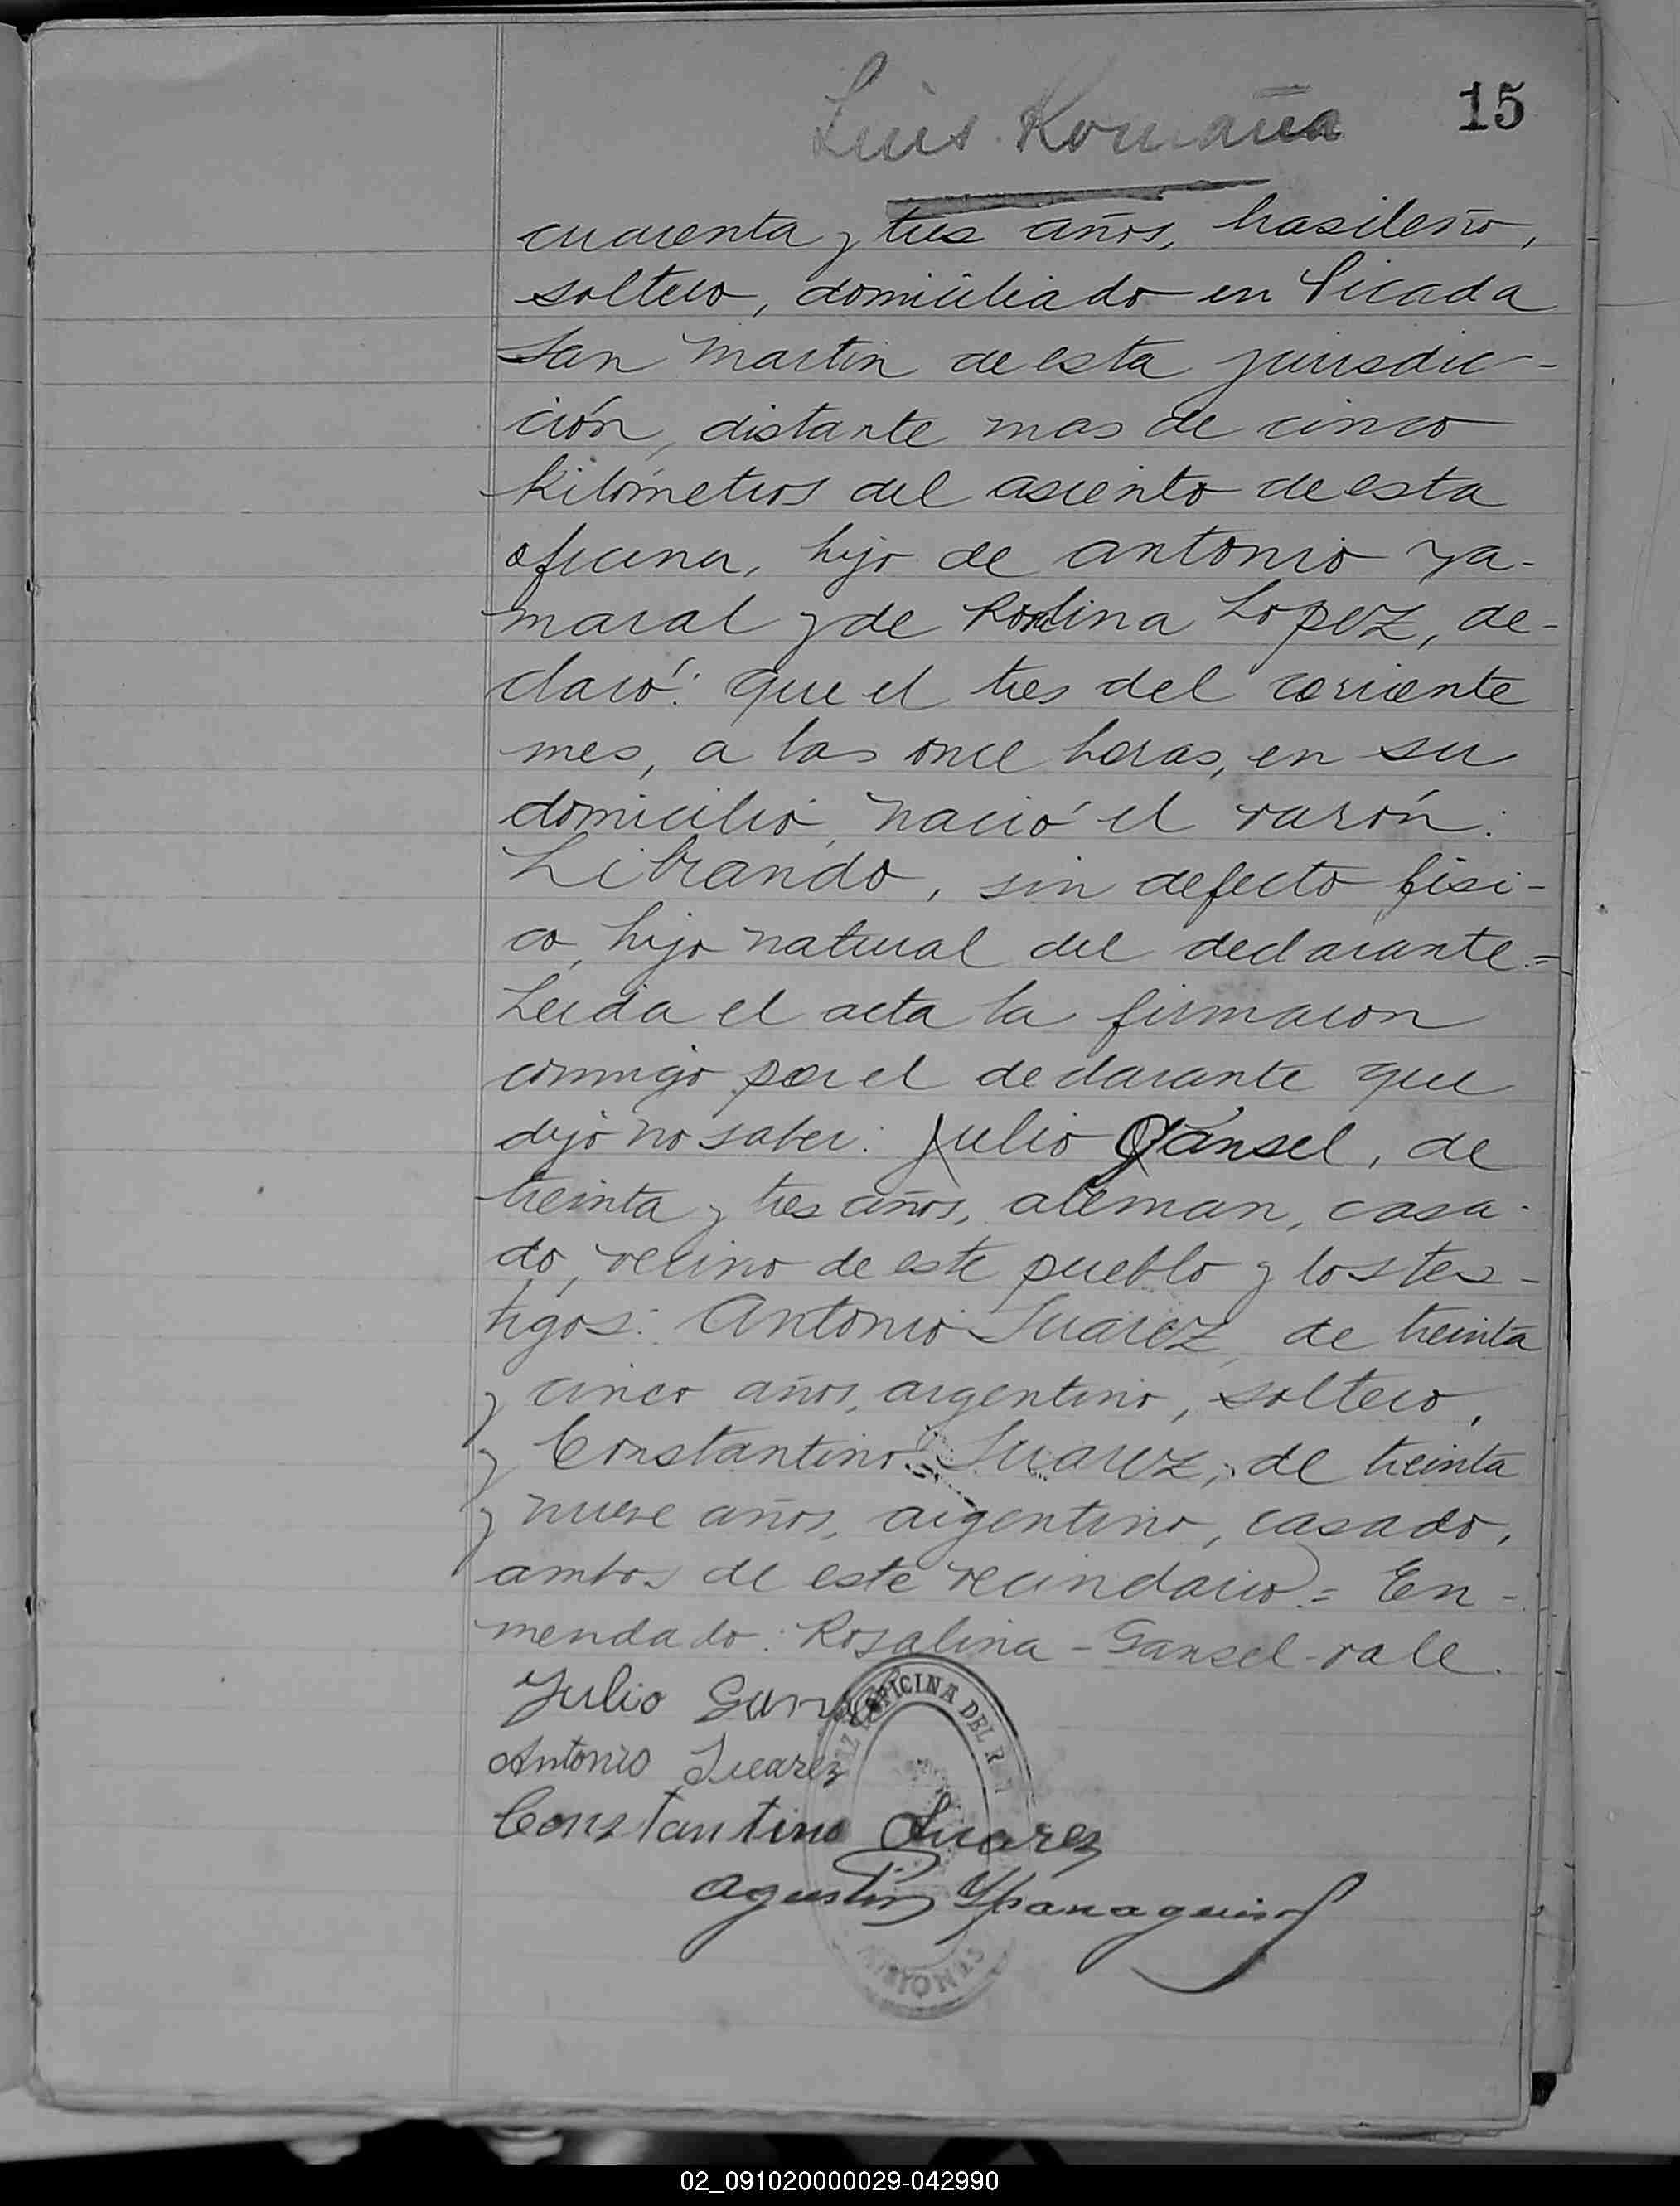 Luis Romaña
15
cuarenta y tres años, brasileño,
soltero, domiciliado en Picada
San Martin de esta jurisdic-
ción, distante mas de cinco
kilómetros del asiento de esta
oficina, hijo de Antonio Ya-
maral y de Rosalina Lopez, de-
claró: que el tres del corriente
mes, a las once horas, en su
domicilio, nació el varón:
Librando, sin defecto fisi-
co, hijo natural del declarante.=
Leida el acta la firmaron
conmigo por el declarante que
dijo no saber: Julio Gansel, de
treinta y tres años, aleman, casa-
do, vecino de este pueblo y los tes-
tigos: Antonio Suarez, de treinta
y cinco años, argentino, soltero,
y Constantino Suarez, de treinta
y nueve años, argentino, casado,
ambos de este vecindario.= En-
mendado: Rosalina - Gansel - vale.
Julio
OFICINA DEL R
Antonio Suarez
Constantino Suarez
Agustin
MISIONES
02_091020000029-042990